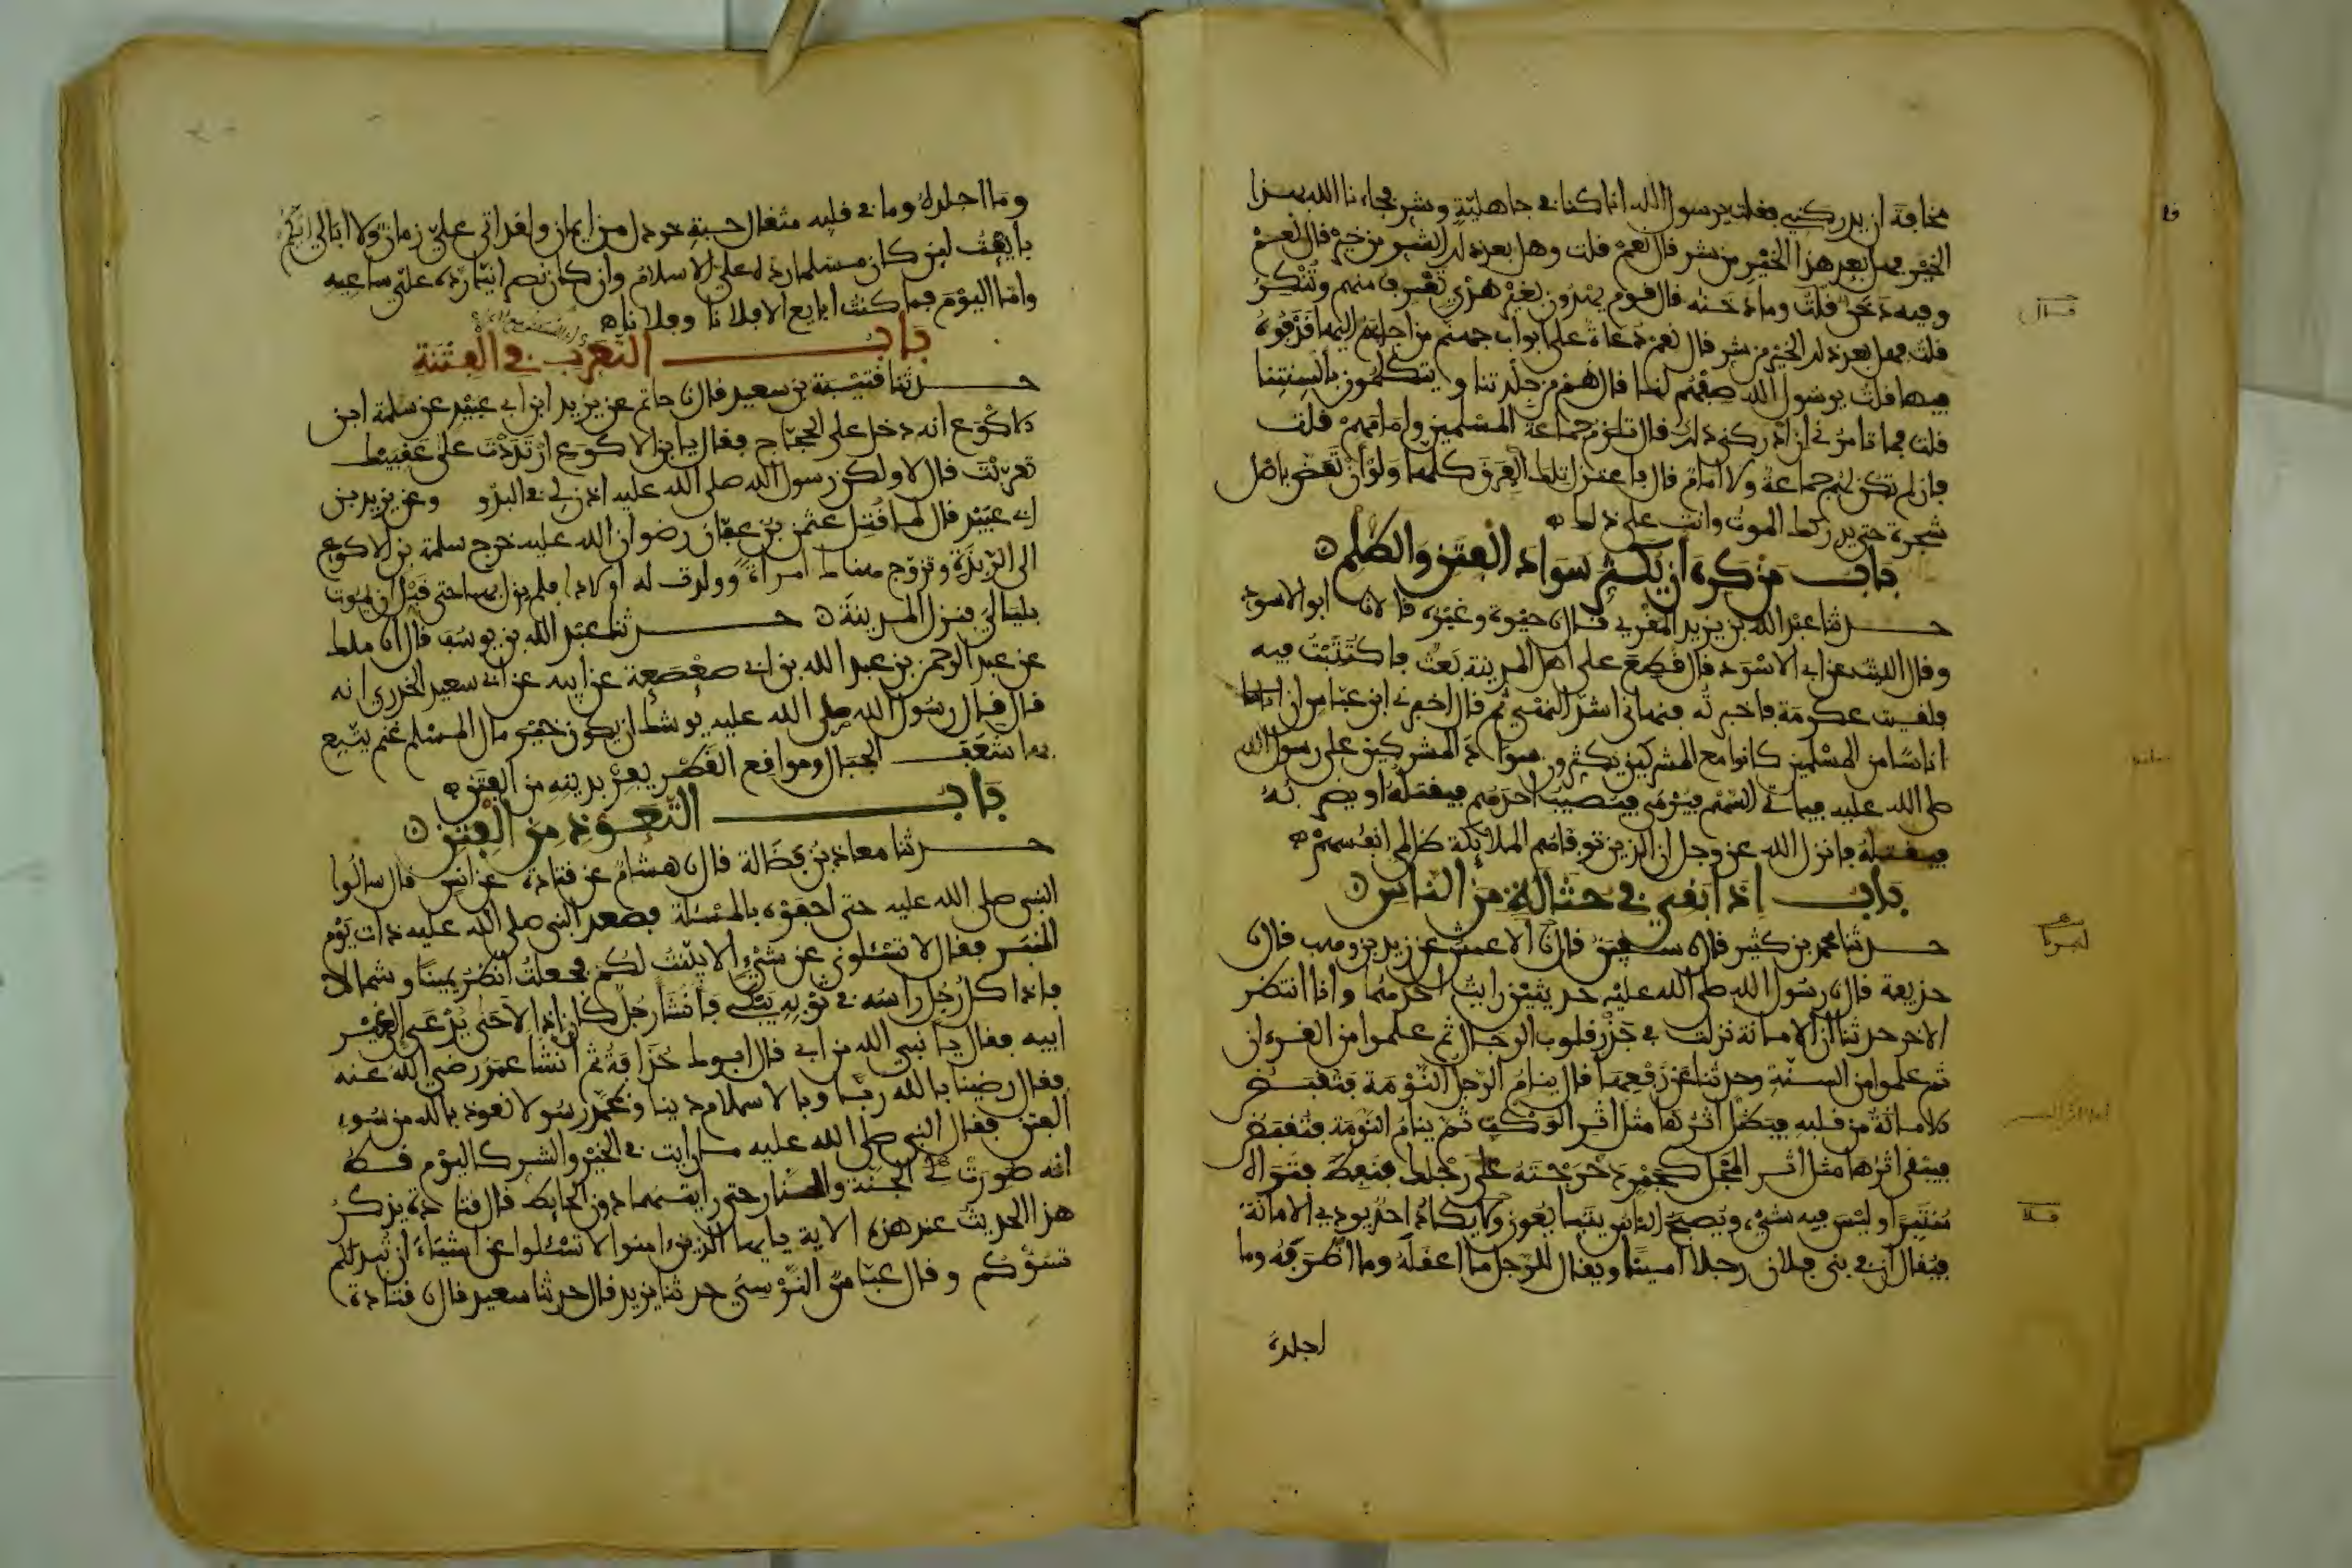 مخافة ان يدركني فقلت يرسول الله انا كنا في جاهلية وشر فجاءنا الله بهذا
الخير فهل بعد هذا الخير من شر قال نعم قلت وهل بعد ذلك الشر من خير قال نعم
وفيه دخن قلت وما دخنه قال قوم يهدون بغير هدي تعرف منهم وتنكر
قلت فهل بعد ذلك الخير من شر قال نعم دعاة على ابواب جهنم من اجابهم اليها قذفوه
فيها قلت يرسول الله صفهم لنا قال هم من جلدتنا ويتكلمون بالسنتنا
قلت فما تامرني ان ادركني ذلك قال تلزم جماعة المسلمين وامامهم قلت
فان لم تكن لهم جماعة ولا امام قال فاعتزل تلك الفرق كلها ولو ان تعض باصل
شجرة حتى يدركك الموت وانت على ذلك
باب من كره ان يكثر سواد الفتن والظلم
حدثنا عبد الله بن يزيد المقري قال نا حيوة وغيره قالا نا ابو الاسود
وقال الليث عن ابي الاسود قال قطع على اهل المدينة بعث فاكتتبت فيه
فلقيت عكرمة فاخبرته فنهاني اشد النهي ثم قال اخبرني ابن عباس ان
اناسا من المسلمين كانوا مع المشركين يكثرون سواد المشركين على رسول الله
صلى الله عليه فياتي السهم فيرمى فيصيب احدهم فيقتله او يضربه
فيقتله فانزل الله عز وجل ان الذين توفاهم الملائكة ظالمي انفسهم
باب اذا بقي في حثالة من الناس
حدثنا محمد بن كثير قال نا سفين قال نا الاعمش عن زيد بن وهب قال نا
حذيفة قال نا رسول الله صلى الله عليه حديثين رايت احدهما وانا انتظر
الاخر حدثنا ان الامانة نزلت في جذر قلوب الرجال ثم علموا من القرءان
ثم علموا من السنة وحدثنا عن رفعها قال ينام الرجل النومة فتقبض
الامانة من قلبه فيظل اثرها مثل اثر الوكت ثم ينام النومة فتقبض
فيبقى اثرها مثل اثر المجل كجمر دحرجته على رجلك فنفط فتراه
منتبرا وليس فيه شيء ويصبح الناس يتبايعون ولا يكاد احد يودي الامانة
فيقال ان في بني فلان رجلا امينا ويقال للرجل ما اعقله وما اظرفه وما
اجلده
وما اجلده وما في قلبه مثقال حبة خردل من ايمان ولقد اتى علي زمان ولا ابالي ايكم
بايعت لين كان مسلما رده علي الاسلام وان كان نصرانيا رده علي ساعيه
واما اليوم فما كنت ابايع الا فلانا وفلانا
باب التعرب في الفتنة
حدثنا قتيبة بن سعيد قال نا حاتم عن يزيد ابن ابي عبيد عن سلمة ابن
الاكوع انه دخل على الحجاج فقال يا ابن الاكوع ارتددت على عقبيك
تعربت قال لا ولكن رسول الله صلى الله عليه اذن لي في البدو وعن يزيد بن
ابي عبيد قال لما قتل عثمن بن عفان رضوان الله عليه خرج سلمة بن الاكوع
الى الربذة وتزوج هناك امراة وولدت له اولادا فلم يزل بها حتى قبل ان يموت
بليالي فنزل المدينة حدثنا عبد الله بن يوسف قال انا ملك
عن عبد الرحمن بن عبد الله بن ابي صعصعة عن ابيه عن ابي سعيد الخدري انه
قال قال رسول الله صلى الله عليه يوشك ان يكون خير مال المسلم غنم يتبع
بها شعف الجبال ومواقع القطر يفر بدينه من الفتن
باب التعوذ من الفتن
حدثنا معاذ بن فضالة قال نا هشام عن قتادة عن انس قال سالوا
النبي صلى الله عليه حتى احفوه بالمسئلة فصعد النبي صلى الله عليه ذات يوم
المنبر فقال لا تسئلوني عن شيء الا بينت لكم فجعلت انظر يمينا وشمالا
فاذا كل رجل راسه في ثوبه يبكي فانشا رجل كان اذا لاحى يدعى الى غير
ابيه فقال يا نبي الله من ابي قال ابوك حذافة ثم انشا عمر رضي الله عنه
فقال رضينا بالله ربا وبالاسلام دينا وبمحمد رسولا نعوذ بالله من سوء
الفتن فقال النبي صلى الله عليه ما رايت في الخير والشر كاليوم قط
انه صورت لي الجنة والنار حتى رايتهما دون الحايط قال قتادة يذكر
هذا الحديث عند هذه الاية يايها الذين ءامنوا لا تسئلوا عن اشياء ان تبد لكم
تسؤكم وقال عباس النرسي حدثنا يزيد قال حدثنا سعيد قال نا قتادة